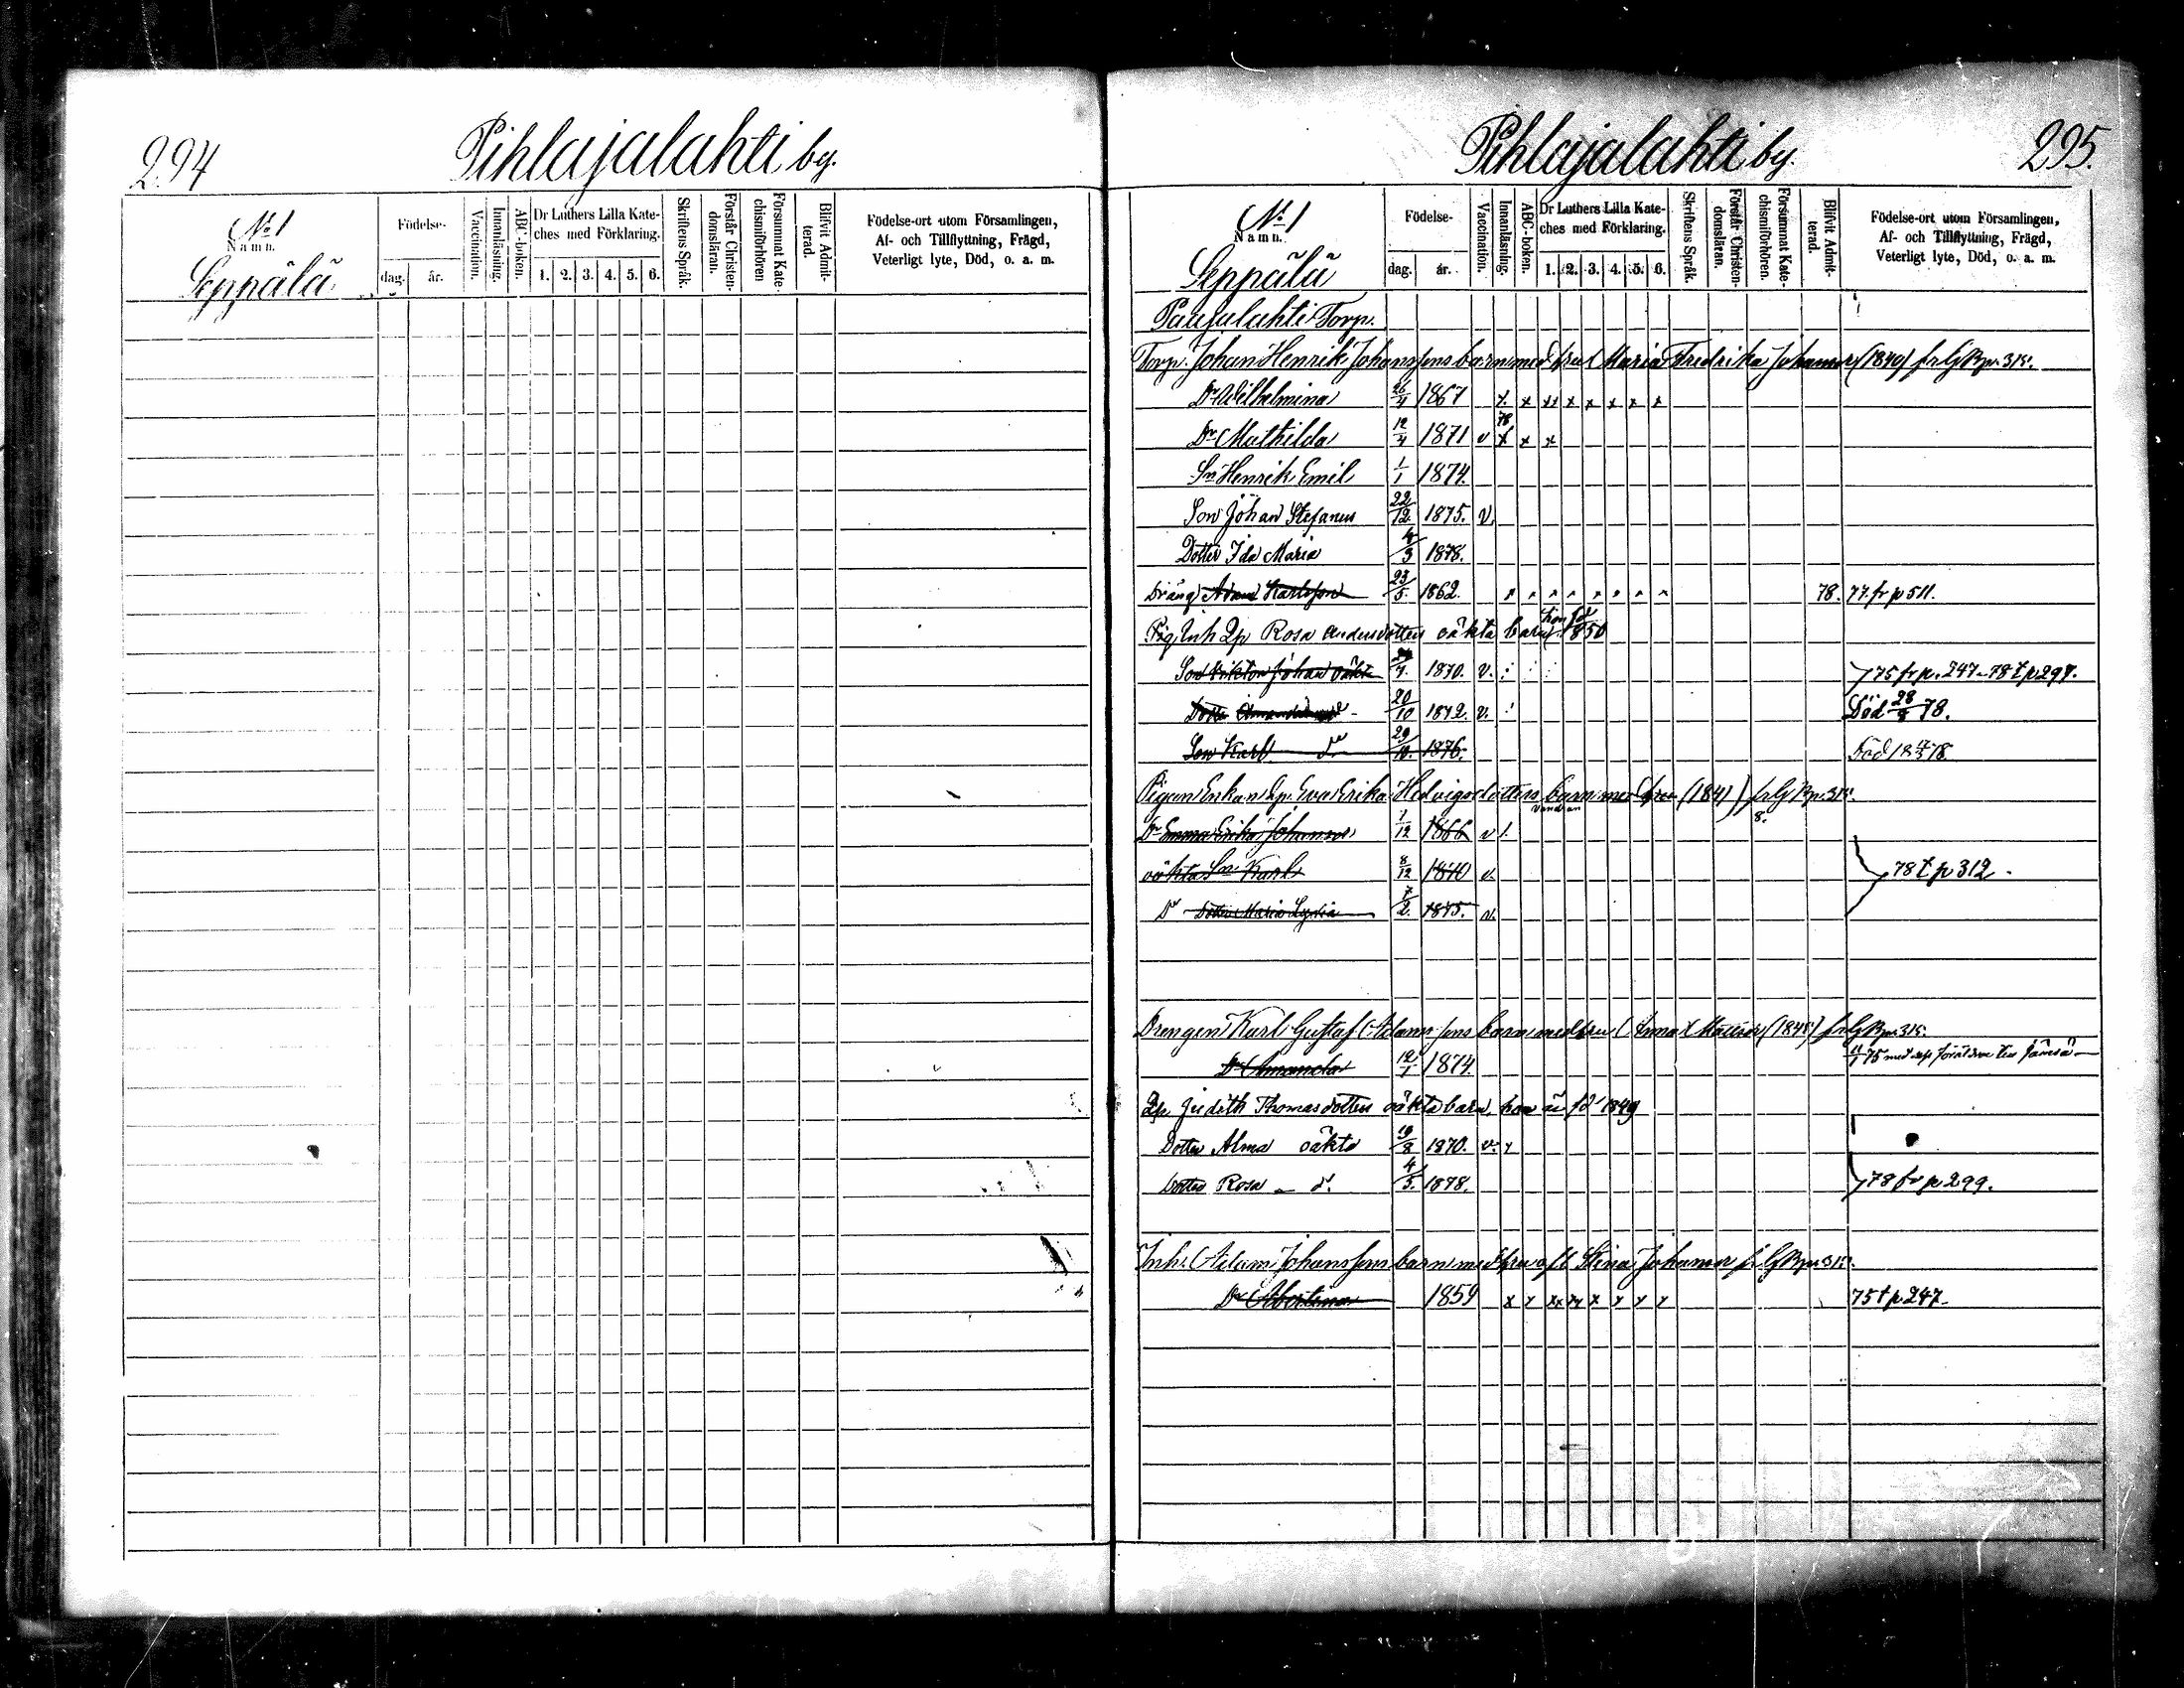 294
Pihlajalahti by.
No 1
Namn.
Seppälä
Födelse-
dag.
år.
Vaccination.
Innanläsning.
ABC-boken.
Dr Luthers Lilla Kate-
ches med Förklaring.
1. 2. 3. 4. 5. 6.
Skriftens Språk.
Förstår Christen-
domsläran.
Försummat Kate-
chismiförhören
Blifvit Admit-
terad.
Födelse-ort utom Församlingen,
Af- och Tillflyttning, Frägd,
Veterligt lyte, Död, o. a. m.
Pihlajalahti by.
295.
No 1
Namn.
Seppälä
Födelse-
dag.
år.
Vaccination.
Innanläsning.
ABC-boken.
Dr Luthers Lilla Kate-
ches med Förklaring.
1. 2. 3. 4. 5. 6.
Skriftens Språk.
Förstår Christen-
domsläran.
Försummat Kate-
chismiförhören.
Blifvit Admit-
terad.
Födelse-ort utom Församlingen,
Af- och Tillflyttning, Frägd,
Veterligt lyte, Död, o. a. m.
Torp.
Torp. Johan Henrik Johanssons barn med hru Maria Fredrika (1849) p. 315.
Dr Wilhelmina 26/4 1867 x x xx x x x x x
Dr Mathilda 12/4 1871 v 78 x x x
Sn Henrik Emil 1/1 1874.
Son Johan Stefanus 22/12 1875. v.
Dotter Ida Maria 4/3 1878.
Dräng Adam Karlsson 23/5. 1862. 78. 77. fr p 511.
Pig. Inh Qp Rosa Andersdotters oäkta barn hon fd 1850
Son Viktor Johan oäkta 1870. v. 75 fr p. 247. 78 t p 297.
Dotter Amanda 20/10 1872. v. Död 28/8 78.
Son Karl do 29/10. 1876. 78.
Pigan Enkan Qp. Eva Erika Hedvigsdotters barn med (1841) p. 315.
Dr Emma Erika 1/12 1866 v
oäkta Sn Karl 8/12 1870 v. 78 t p 312.
Do Dotter Maria Lydia 7/2. 1875. v.
Drengen Karl Gustaf Adamssons barn med hru Anna (1845) p. 315.
Dr Amanda 12/1 1874 75 med till Jämsä
Qp. Judith Thomasdotters oäkta barn, hon är fd 1849
Dotter Alma oäkta 19/8 1870. v. x
Dotter Rosa do. 4/5. 1878. 78 fr p 299.
Inh. Adam Johanssons barn med hru afl. Stina p. 315.
Dr Albertina 1859 x x xx xx x x x x 75 t p 247.